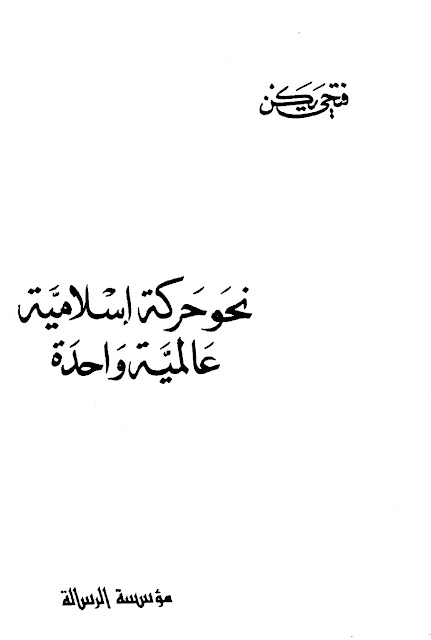 فتحي يكن
نحَو حَركة إسْلاميَّة
عَالميَّة وَاحدَة
مؤسسة الرسالة